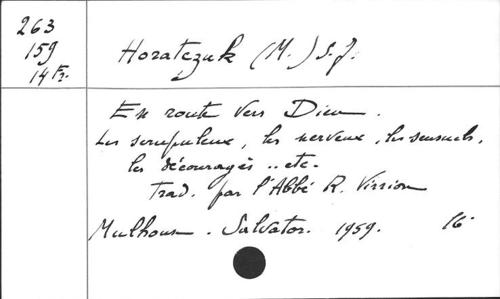 263
159
14 Fr.
Horatczuk (M.) S.J.
En route vers Dieu.
Les scrupuleux, les nerveux, les sensuels,
les découragés .. etc.
Trad. par l'Abbé R. Virrion
Mulhouse. Salvator. 1959. 16°